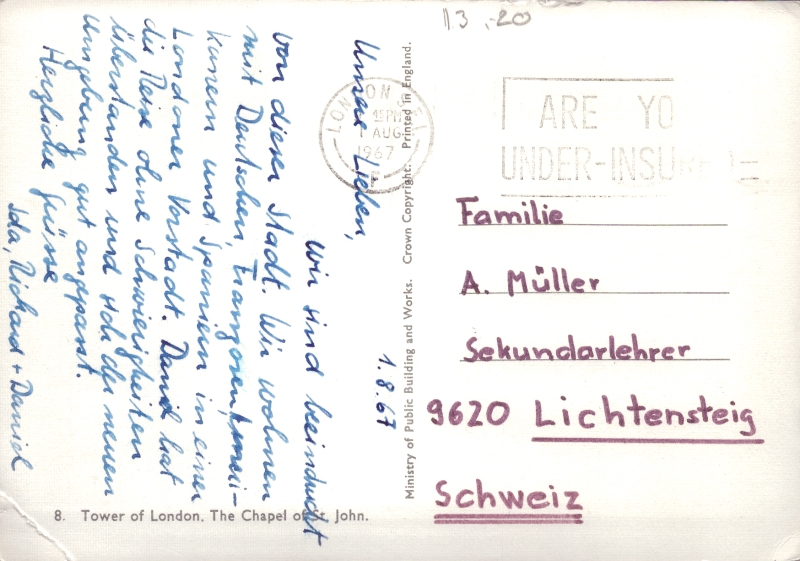 13.-20
LONDON S.E.1
15PM
1 AUG
1967
F
ARE YO
UNDER-INSURED
1.8.67
Unsere Lieben,
Wir sind beeindruckt
von dieser Stadt. Wir wohnen
mit Deutschen, Franzosen, Ameri-
kanern und Spaniern in einer
Londoner Vorstadt. Daniel hat
die Reise ohne Schwierigkeiten
überstanden und sich der neuen
Umgebung gut angepasst.
Herzliche Grüsse
Ida, Richard + Daniel
8. Tower of London, The Chapel of St. John.
Ministry of Public Building and Works. Crown Copyright. Printed in England.
Familie
A. Müller
Sekundarlehrer
9620 Lichtensteig
Schweiz